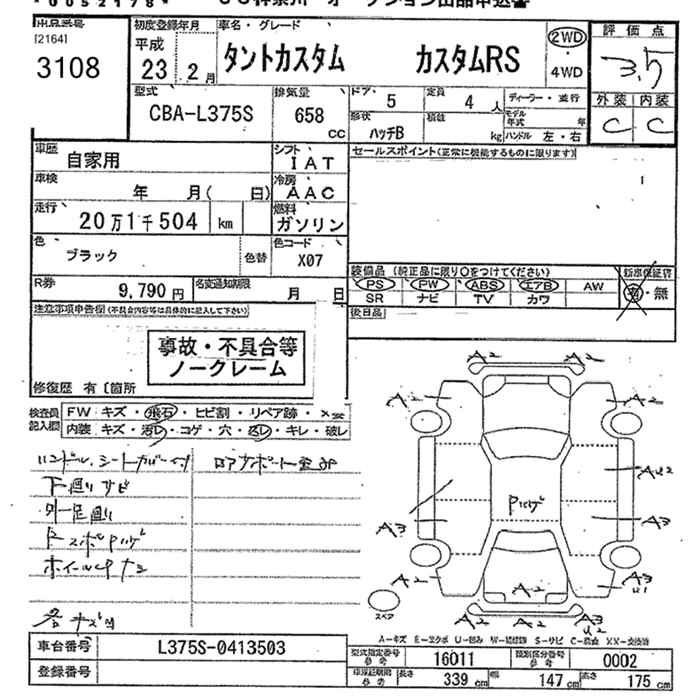 *0052178*
出品番号
[2164]
3108
初度登録年月
平成
23 2月
車名・グレード
タントカスタム カスタムRS
2WD
・
4WD
評価点
3.5
外装 内装
C C
型式
CBA-L375S
排気量
658
CC
ドア 5
定員 4人
ディーラー・並行
形状
ハッチB
積載 kg
モデル年式 年
ハンドル 左・右
車歴
自家用
シフト
IAT
セールスポイント(正常に機能するものに限ります)
車検
年 月( 日)
冷房
AAC
走行
20万1千504 km
燃料
ガソリン
色
ブラック
色替
色コード
X07
装備品(純正品に限り○をつけてください)
新車保証書
PS PW ABS エアB AW
有・無
SR ナビ TV カワ
R券
9,790円
名変通知期限
月 日
後日品
注意事項申告欄(不具合内容等は具体的に記入して下さい)
事故・不具合等
ノークレーム
修復歴 有〔箇所
検査員
記入欄
FW キズ・飛石・ヒビ割・リペア跡・
内装 キズ・汚レ・コゲ・穴・スレ・キレ・破レ
ハンドル、シートカバー付
下廻りサビ
外一足廻り
各キズ凹
A2 A2
A2 A2
AU2
Pハゲ
A3 A3
A2 A2 A3
U1
A2 A3
U2
スペア
A-キズ E-エクボ U-凹み W-補修跡 S-サビ C-腐食 XX-交換済
車台番号
L375S-0413503
登録番号
型式指定番号
参考
16011
類別区分番号
参考
0002
長さ
339 cm
幅
147 cm
高さ
175 cm